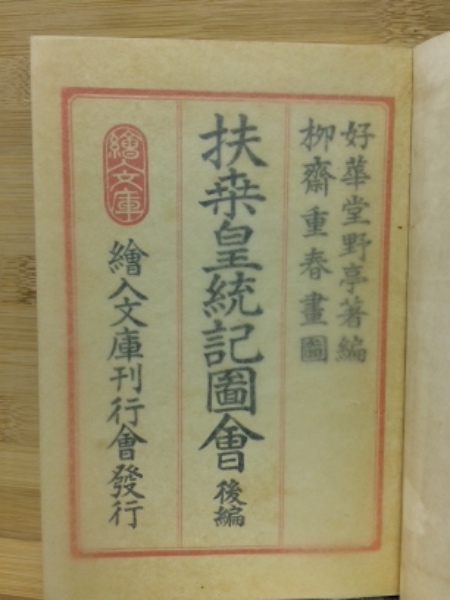 好華堂野亭著編
柳齋重春畫圖
扶桒皇統記圖會後編
繪入文庫
繪入文庫刊行會發行